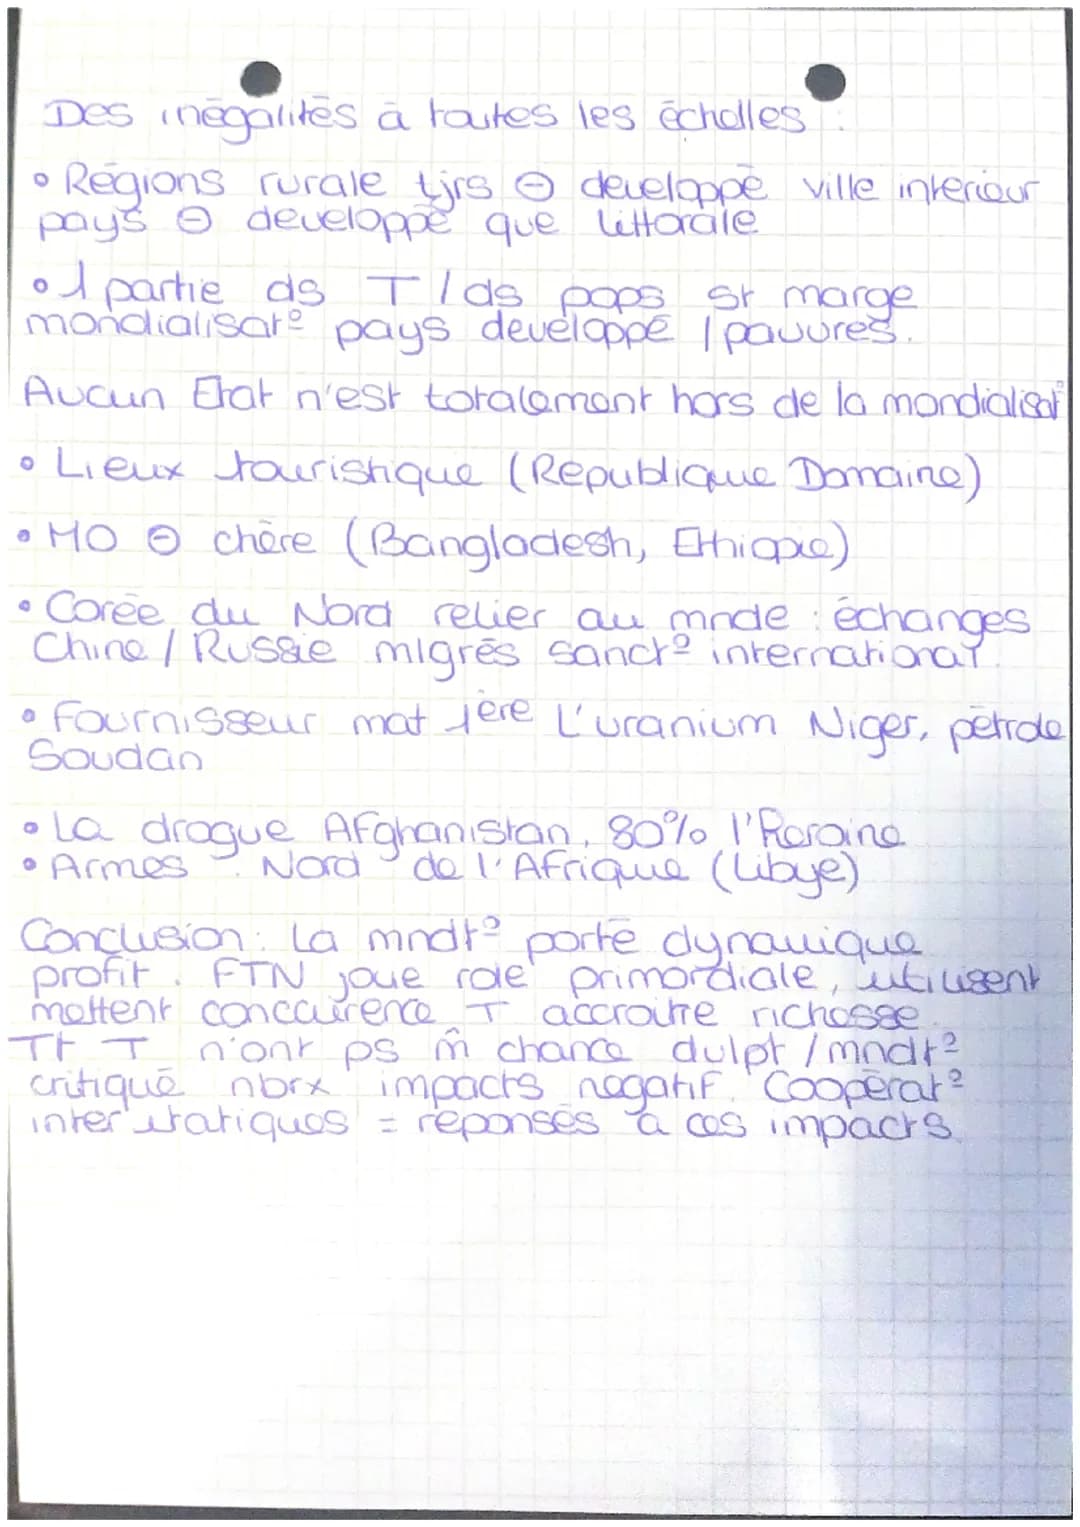 Des inégalités à toutes les échelles :
• Régions rurale tjrs ⊖ developpé ville interieur
pays ⊖ developpé que littorale
• 1 partie ds T / ds pops st marge
mondialisat° pays developpé / pauvres.
Aucun Etat n'est totalement hors de la mondialisat°
• Lieux touristique (Republique Domaine)
• MO ⊖ chère (Bangladesh, Ethiopie)
• Corée du Nord relier au mnde : échanges
Chine / Russie migrés sanct° international.
• Fournisseur mat 1ère L'uranium Niger, pétrole
Soudan
• La drogue Afghanistan, 80% l'heroine
• Armes : Nord de l'Afrique (Libye)
Conclusion : La mndt° porté dynamique
profit. FTN joue role primordiale, utilisent
mettent concurrence T accroitre richesse.
Tt T n'ont ps m̂ chance dvlpt / mndt°
critiqué nbrx impacts negatif. Coopérat°
inter etatiques = réponses à ces impacts.